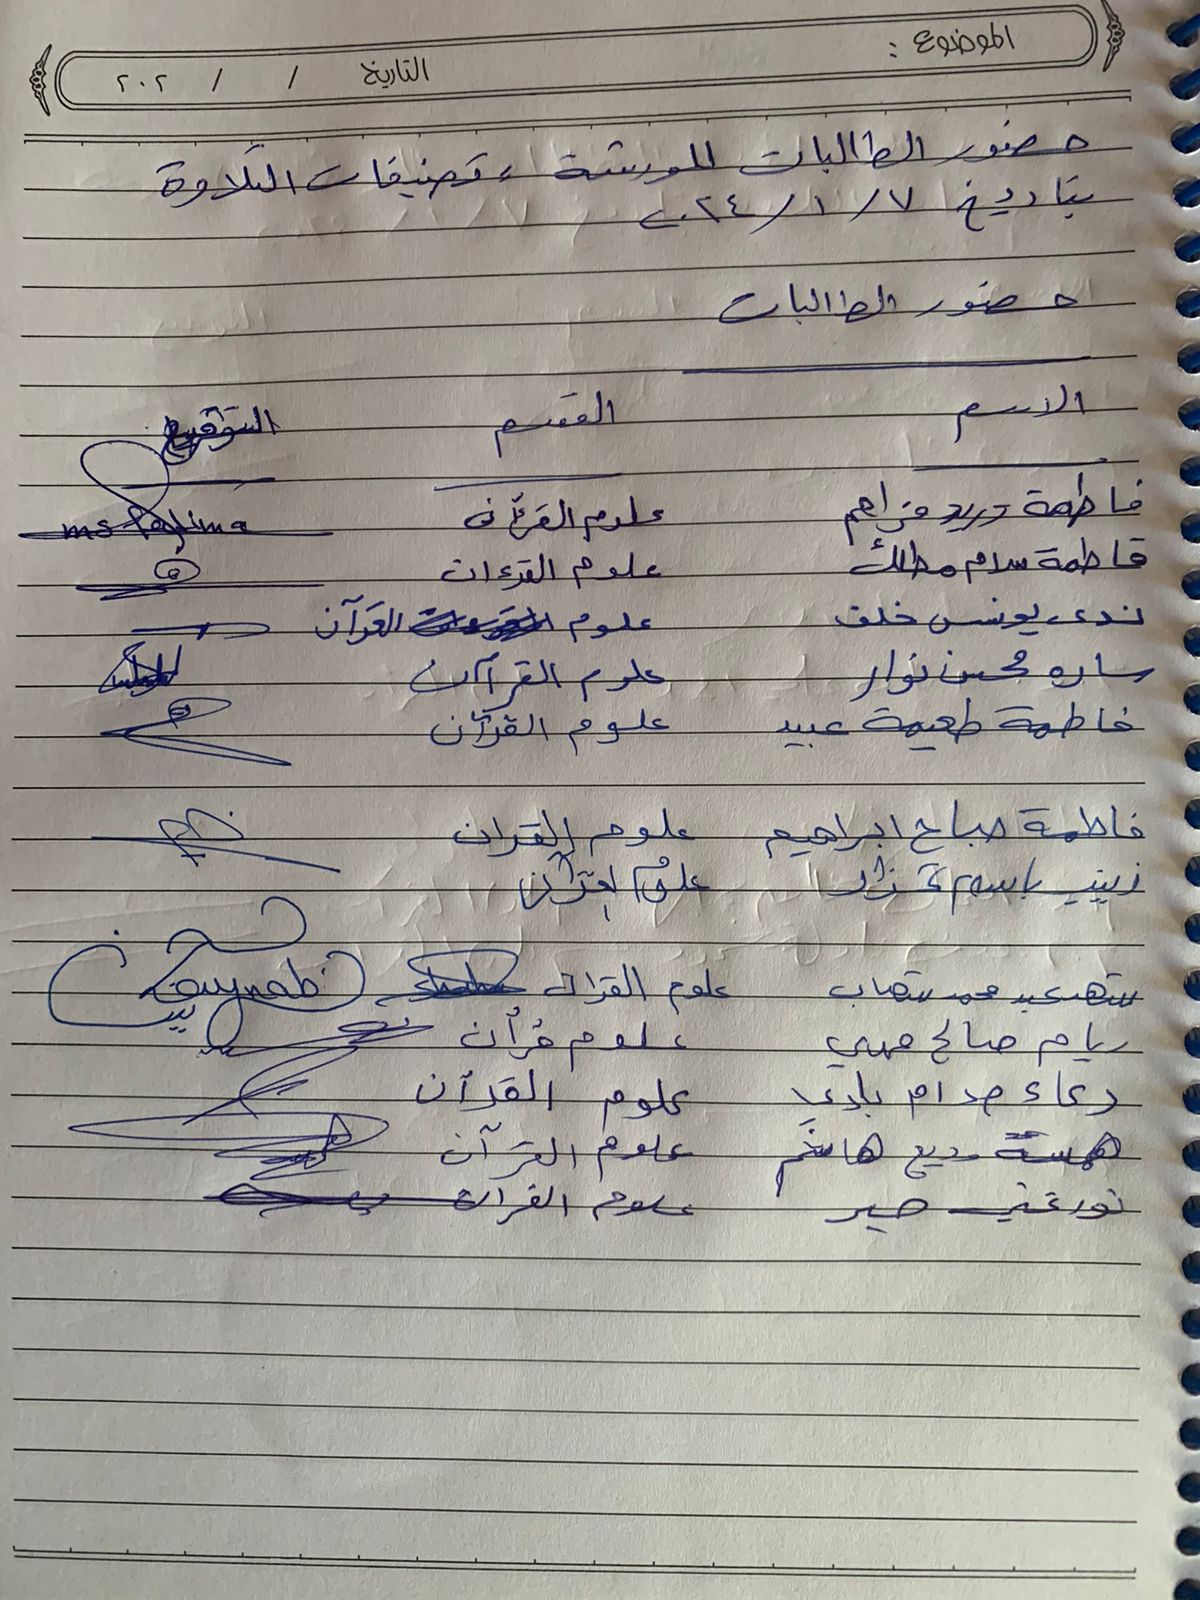 الموضوع :
التاريخ / / ٢٠٢
حضور الطالبات للورشة ، تصنيفات التلاوة
بتاريخ ٧/ ١/ ٢٠٢٤
حضور الطالبات
الاسم القسم التوقيع
فاطمة دريد مزاحم علوم القرآن ms fatima
فاطمة سلام مطلك علوم القرءان
ندى يونس خلف علوم القرآن
ساره محسن نوار علوم القرآن
فاطمة طعيمة عبيد علوم القرآن
فاطمة صباح ابراهيم علوم القران
زينب باسم علوم القرآن
شهد عبد محمد شهاب علوم القران Zaynab
ريام صالح مهدي علوم قرآن
دعاء صدام بادي علوم القرآن
همسة وديع هاشم علوم القرآن
نور غني علوم القران